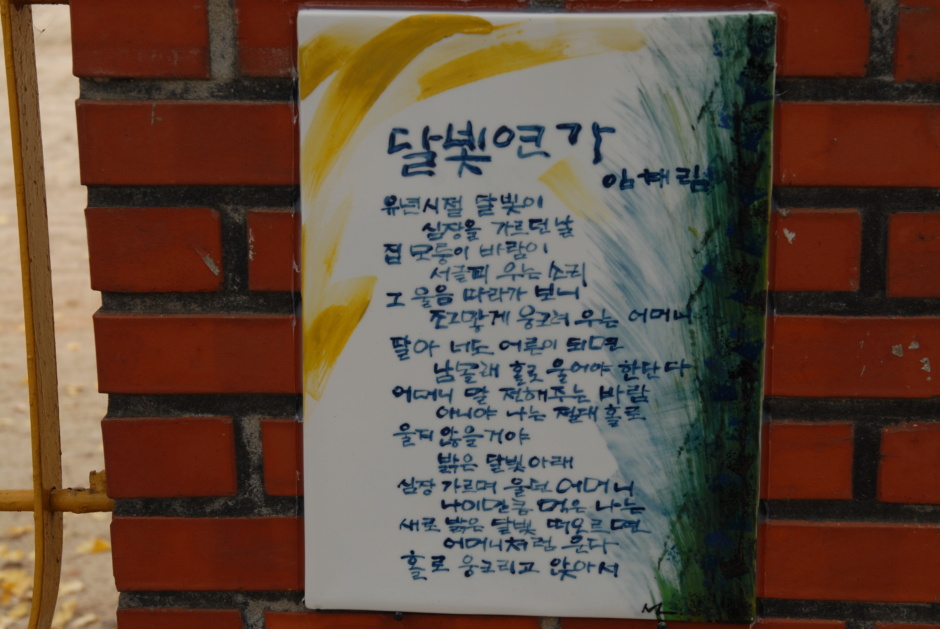 달빛연가
임해림
유년시절 달빛이
심장을 가르던 날
집 모퉁이 바람이
서글피 우는 소리
그 울음 따라가 보니
조그맣게 웅크려 우는 어머니
딸아 너도 어른이 되면
남몰래 홀로 울어야 한단다
어머니 말 전해주는 바람
아니야 나는 절대 홀로
울지 않을거야
밝은 달빛 아래
심장 가르며 울던 어머니
나이만큼 먹은 나는
새로 밝은 달빛 떠오르면
어머니처럼 운다
홀로 웅크리고 앉아서